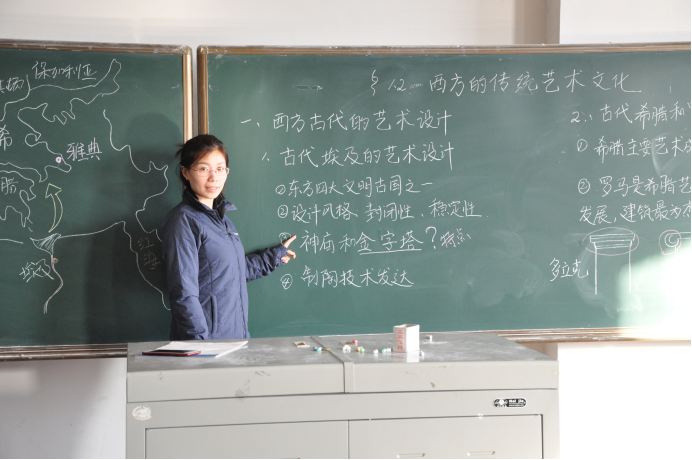 保加利亚
希
雅典
腊
埃及
红海
§1.2 西方的传统艺术文化
一、西方古代的艺术设计
1. 古代埃及的艺术设计
①东方四大文明古国之一
②设计风格 封闭性、稳定性
③神庙和金字塔？特点
④制陶技术发达
2. 古代希腊和
①希腊主要艺术成
②罗马是希腊艺
发展，建筑最为
多立克